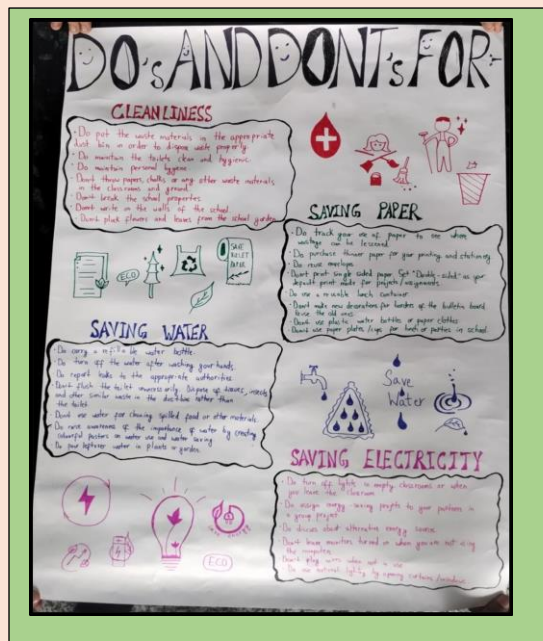 DO's AND DONT's FOR-
CLEANLINESS
• Do put the waste materials in the appropriate
dust bin in order to dispose waste properly.
• Do maintain the toilets clean and hygienic.
• Do maintain personal hygiene.
• Don't throw papers, chalks or any other waste materials
in the classrooms and ground.
• Don't break the school properties.
• Don't write on the walls of the school.
• Don't pluck flowers and leaves from the school garden.
SAVING PAPER
• Do track your use of paper to see where
wastage can be lessened.
• Do purchase thinner paper for your printing and stationery
• Do reuse envelopes.
• Don't print single sided paper. Set "Double-sided" as your
default print mode for projects/assignments.
• Do use a reusable lunch container
• Don't make new decorations for borders of the bulletin board
Reuse the old ones.
• Don't use plastic water bottles or paper clothes.
• Don't use paper plates/cups for lunch or parties in school.
ECO
SAVE
TOILET
PAPER
SAVING WATER
• Do carry a refillable water bottle.
• Do turn off the water after washing your hands.
• Do report leaks to the appropriate authorities.
• Don't flush the toilet unnecessarily. Dispose of tissues, insects
and other similar waste in the dustbin rather than
the toilet.
• Don't use water for cleaning spilled food or other materials.
• Do raise awareness of the importance of water by creating
colourful posters on water use and water saving
• Do pour leftover water in plants or garden.
Save
Water
SAVING ELECTRICITY
• Do turn off lights in empty classrooms or when
you leave the classroom.
• Do assign energy-saving projects to your partners in
a group project.
• Do discuss about alternative energy source.
• Don't leave monitors turned on when you are not using
the computer.
• Don't plug wires when not in use
• Do use natural lights by opening curtains/windows.
ECO